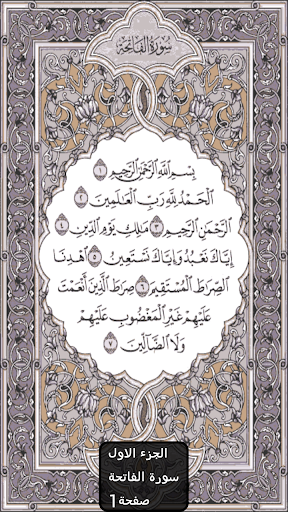 سُورَةُ الفَاتِحَةِ
بِسْمِ اللَّهِ الرَّحْمَٰنِ الرَّحِيمِ ١
الْحَمْدُ لِلَّهِ رَبِّ الْعَالَمِينَ ٢
الرَّحْمَٰنِ الرَّحِيمِ ٣ مَالِكِ يَوْمِ الدِّينِ ٤
إِيَّاكَ نَعْبُدُ وَإِيَّاكَ نَسْتَعِينُ ٥ اهْدِنَا
الصِّرَاطَ الْمُسْتَقِيمَ ٦ صِرَاطَ الَّذِينَ أَنْعَمْتَ
عَلَيْهِمْ غَيْرِ الْمَغْضُوبِ عَلَيْهِمْ
وَلَا الضَّالِّينَ ٧
الجزء الاول
سورة الفاتحة
صفحة 1